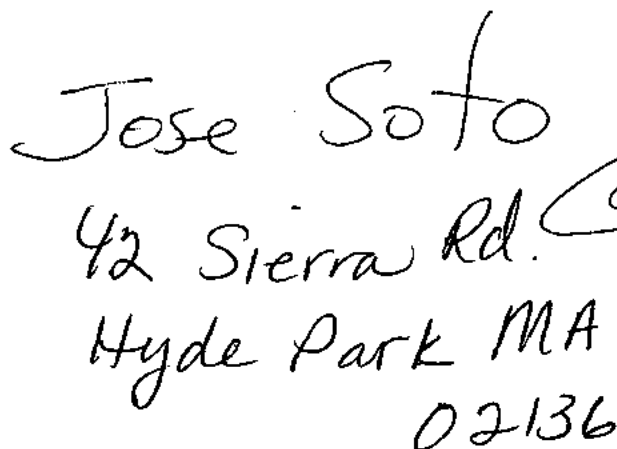 Jose Soto
42 Sierra Rd.
Hyde Park MA
02136